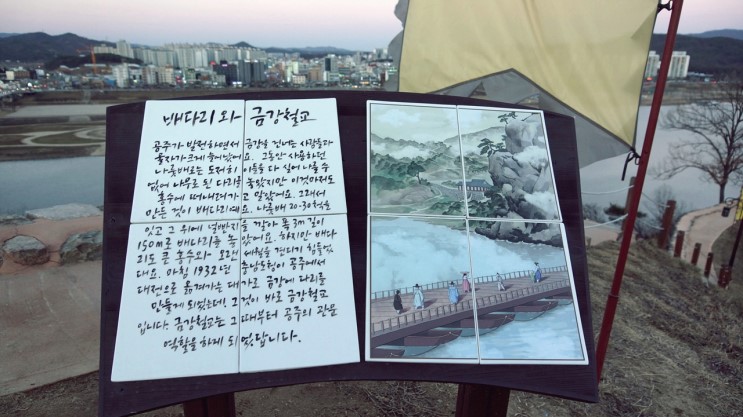 배다리와 금강철교
공주가 발전하면서 금강을 건너는 사람들과
물자가 크게 늘어났어요. 그동안 사용하던
나룻배로는 도저히 이들을 다 실어 나를 수
없어 나무로 된 다리를 놓았지만 이것마저도
홍수에 떠내려가고 말았어요. 그래서
만든 것이 배다리예요. 나룻배 20-30척을
잇고 그 위에 널빤지를 깔아 폭 3m 길이
150m로 배다리를 놓았어요. 하지만 배다
리도 큰 홍수와 오랜 세월을 견디기 힘들었
대요. 마침 1932년 충남도청이 공주에서
대전으로 옮겨가는 대가로 금강에 다리를
만들게 되었는데, 그것이 바로 금강철교
입니다. 금강철교는 그때부터 공주의 관문
역할을 하게 되었답니다.